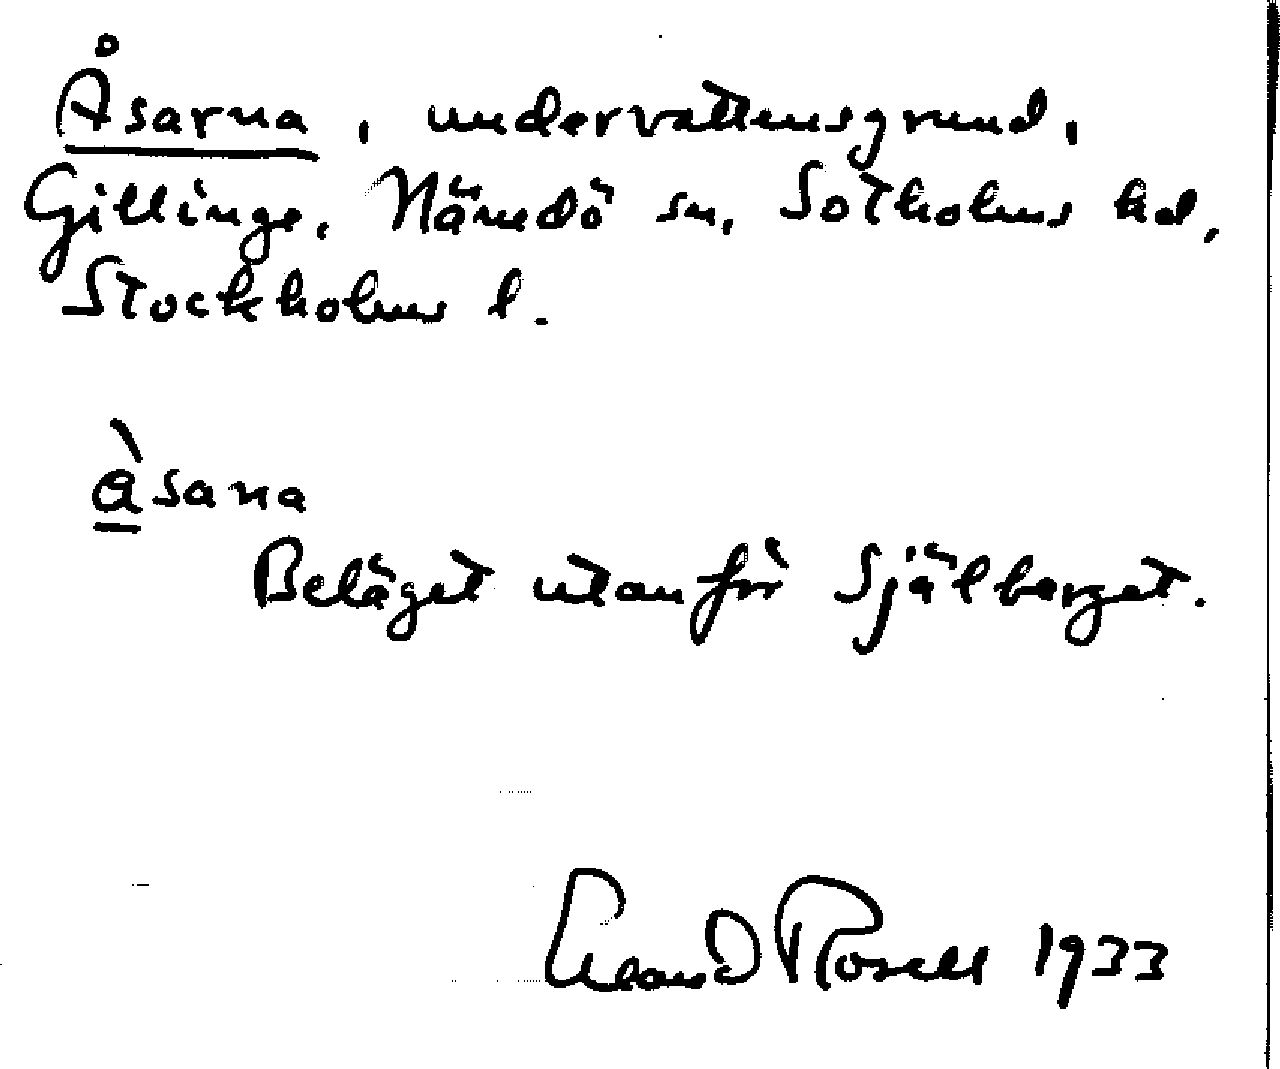 Åsarna, undervattensgrund,
Gillinge, Nämdö sn, Sotholms hd,
Stockholms l.
å̀sana
Beläget utanför Själberget.
Erland Rosell 1933